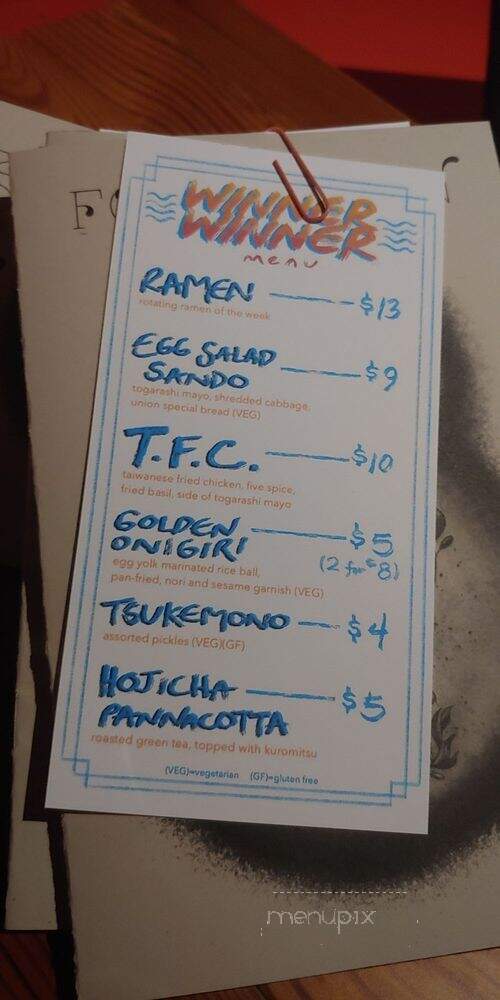 WINNER
WINNER
menu
RAMEN $13
rotating ramen of the week
EGG SALAD
SANDO $9
togarashi mayo, shredded cabbage,
union special bread (VEG)
T.F.C. $10
taiwanese fried chicken, five spice,
fried basil, side of togarashi mayo
GOLDEN
ONIGIRI $5
(2 for $8)
egg yolk marinated rice ball,
pan-fried, nori and sesame garnish (VEG)
TSUKEMONO $4
assorted pickles (VEG)(GF)
HOJICHA
PANNACOTTA $5
roasted green tea, topped with kuromitsu
(VEG)=vegetarian (GF)=gluten free
menupix